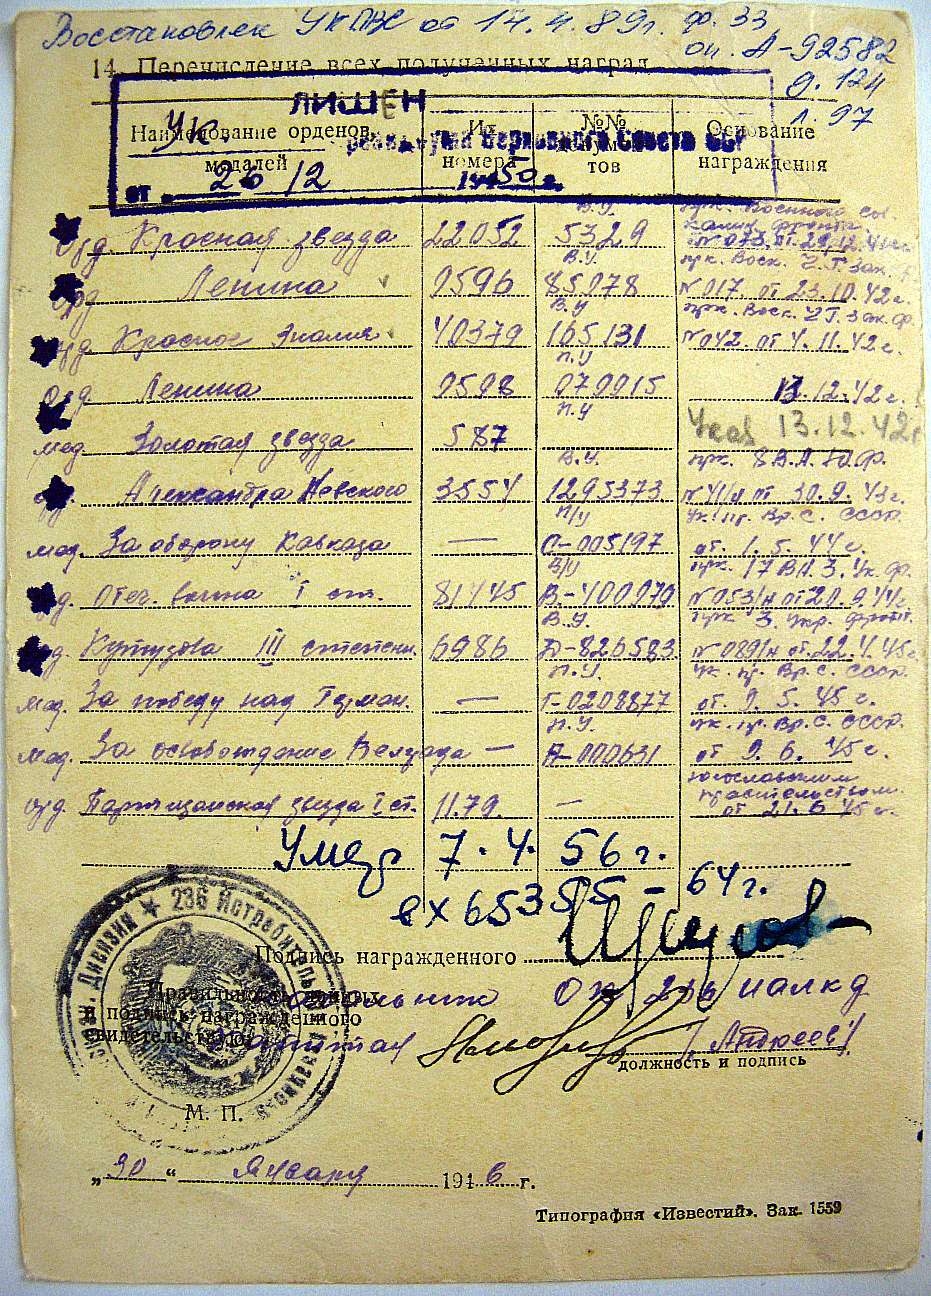 Восстановлен УКПВС от 14.4.89г. ф. 33
оп. А-92582
14. Перечисление всех полученных наград
д. 124
л. 97
ЛИШЕН
Наименование орденов, медалей | Их номера | №№ документов | Основание награждения
Ук. Президиума Верховного Совета СССР
от 26 12 1950 г.
Орд. Красная звезда | 22052 | В.У. 5329 | №073 от 29.12.41г.
Орд. Ленина | 9596 | В.У. 85078 | №017 от 23.10.42г.
Орд. Красное Знамя | 40379 | В.У. 165131 | №042 от 4.11.42г.
Орд. Ленина | 9598 | П.У. 079915 | 13.12.42г.
мед. Золотая звезда | 587 | П.У. | Указ 13.12.42г.
Орд. Александра Невского | 3554 | В.У. 1295373 | прк. 8 В.А. Ю.Ф. №41/н от 30.9.43г.
мед. За оборону Кавказа | — | П/У О-005197 | Ук. пр. Вр.С. СССР от 1.5.44г.
Орд. Отеч. война I ст. | 81445 | В/У В-400979 | прк. 17 ВА 3. Ук. Ф. №053/н от 20.9.44г.
Орд. Кутузова III степени | 6986 | В.У. Д-826583 | прк 3. Укр. фронт. №089/н от 22.4.45г.
мед. За победу над Герман. | — | П.У. Г-0208877 | Ук. пр. Вр.С. СССР. от 9.5.45г.
мед. За освобождение Белграда | — | П.У. А-000631 | Ук. пр. Вр.С. СССР. от 9.6.45г.
орд. Партизанская звезда I ст. | 1179. | — | югославским правительством. от 21.6 45г.
Умер 7.4.56г.
вх 65355-64г.
Подпись награжденного
Правильность данных
и подпись награжденного
свидетельствую
Начальник ОК 236 иапкд
капитан /Андреев/
должность и подпись
236 Истребительн. Авиацион. Дивизии
М. П.
„30“ Января 1946 г.
Типография «Известий». Зак. 1559